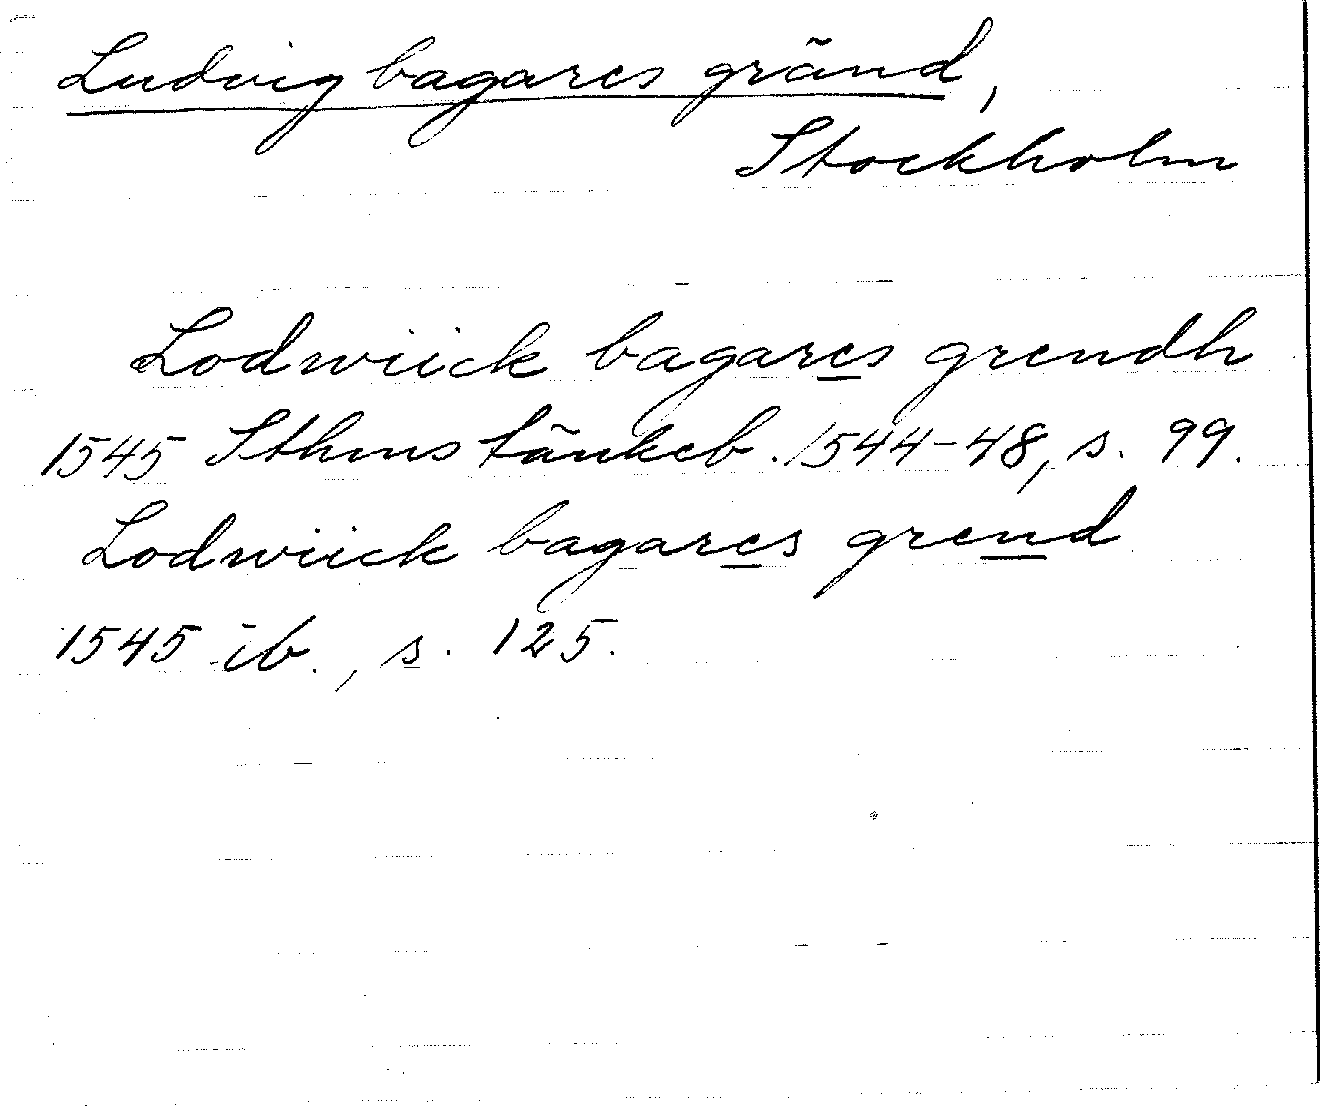 Ludvig bagares gränd,
Stockholm
Lodwiick bagares grendh
1545 Sthms tänkeb. 1544-48, s. 99.
Lodwiick bagares grend
1545 ib., s. 125.